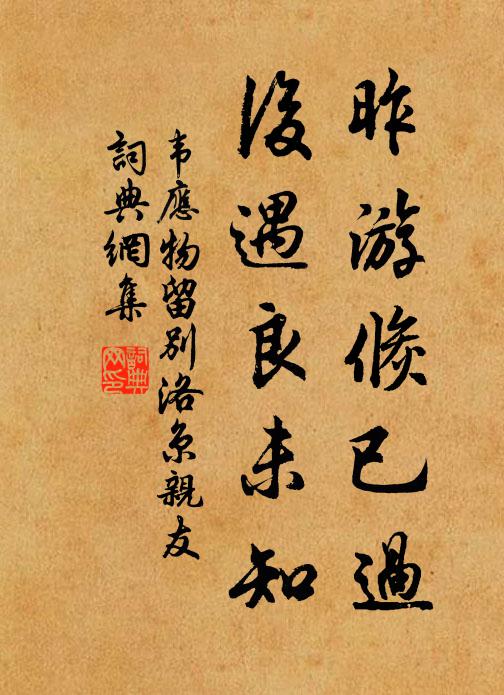 昨游倏已過
後遇良未知
韦應物留别洛京親友
詞典網集
詞典网印